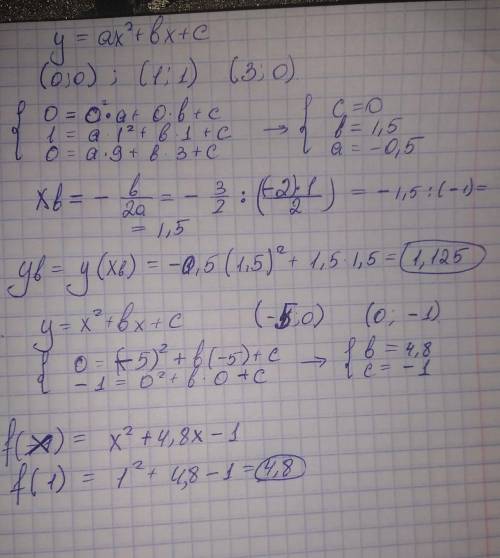 y = ax²+bx+c
(0;0) ; (1;1) (3;0)
{ 0 = 0²·a + 0·b + c → { c = 0
1 = a·1² + b·1 + c b = 1,5
0 = a·9 + b·3 + c a = -0,5
Xв = - b/2a = - 3/2 : ((-2)·1/2) = -1,5:(-1) =
= 1,5
yв = y(xв) = -0,5(1,5)² + 1,5·1,5 = 1,125
y = x²+bx+c (-5;0) (0; -1)
{ 0 = (-5)² + b(-5) + c → { b = 4,8
-1 = 0² + b·0 + c c = -1
f(x) = x² + 4,8x - 1
f(1) = 1² + 4,8 - 1 = 4,8